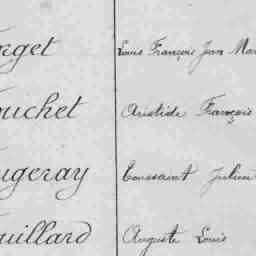 rget Louis François Jean Mar
ouchet Aristide François
ugeray Toussaint Julien
uillard Auguste Louis